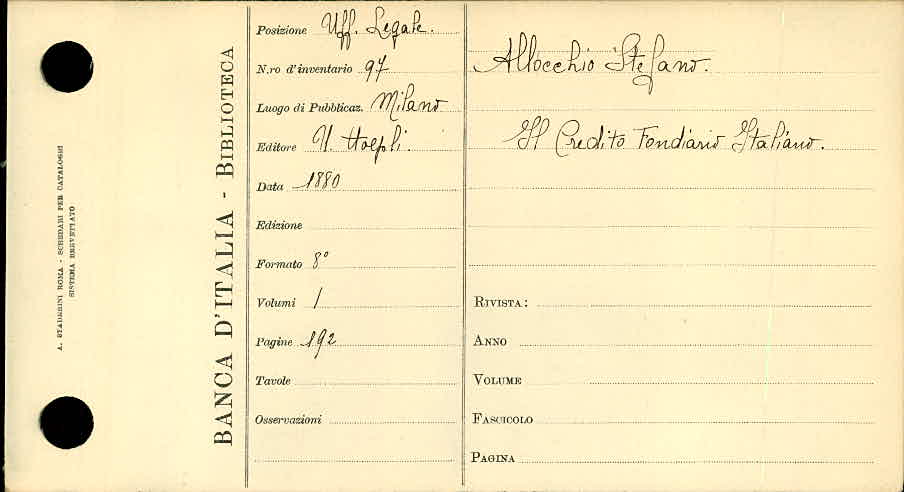 A. STADERINI ROMA - SCHEDARI PER CATALOGHI
SISTEMA BREVETTATO
BANCA D'ITALIA - BIBLIOTECA
Posizione Uff. Legale.
N.ro d'inventario 97
Luogo di Pubblicaz. Milano
Editore U. Hoepli.
Data 1880
Edizione
Formato 8°
Volumi 1
Pagine 192
Tavole
Osservazioni
Allocchio Stefano.
Il Credito Fondiario Italiano.
RIVISTA:
ANNO
VOLUME
FASCICOLO
PAGINA